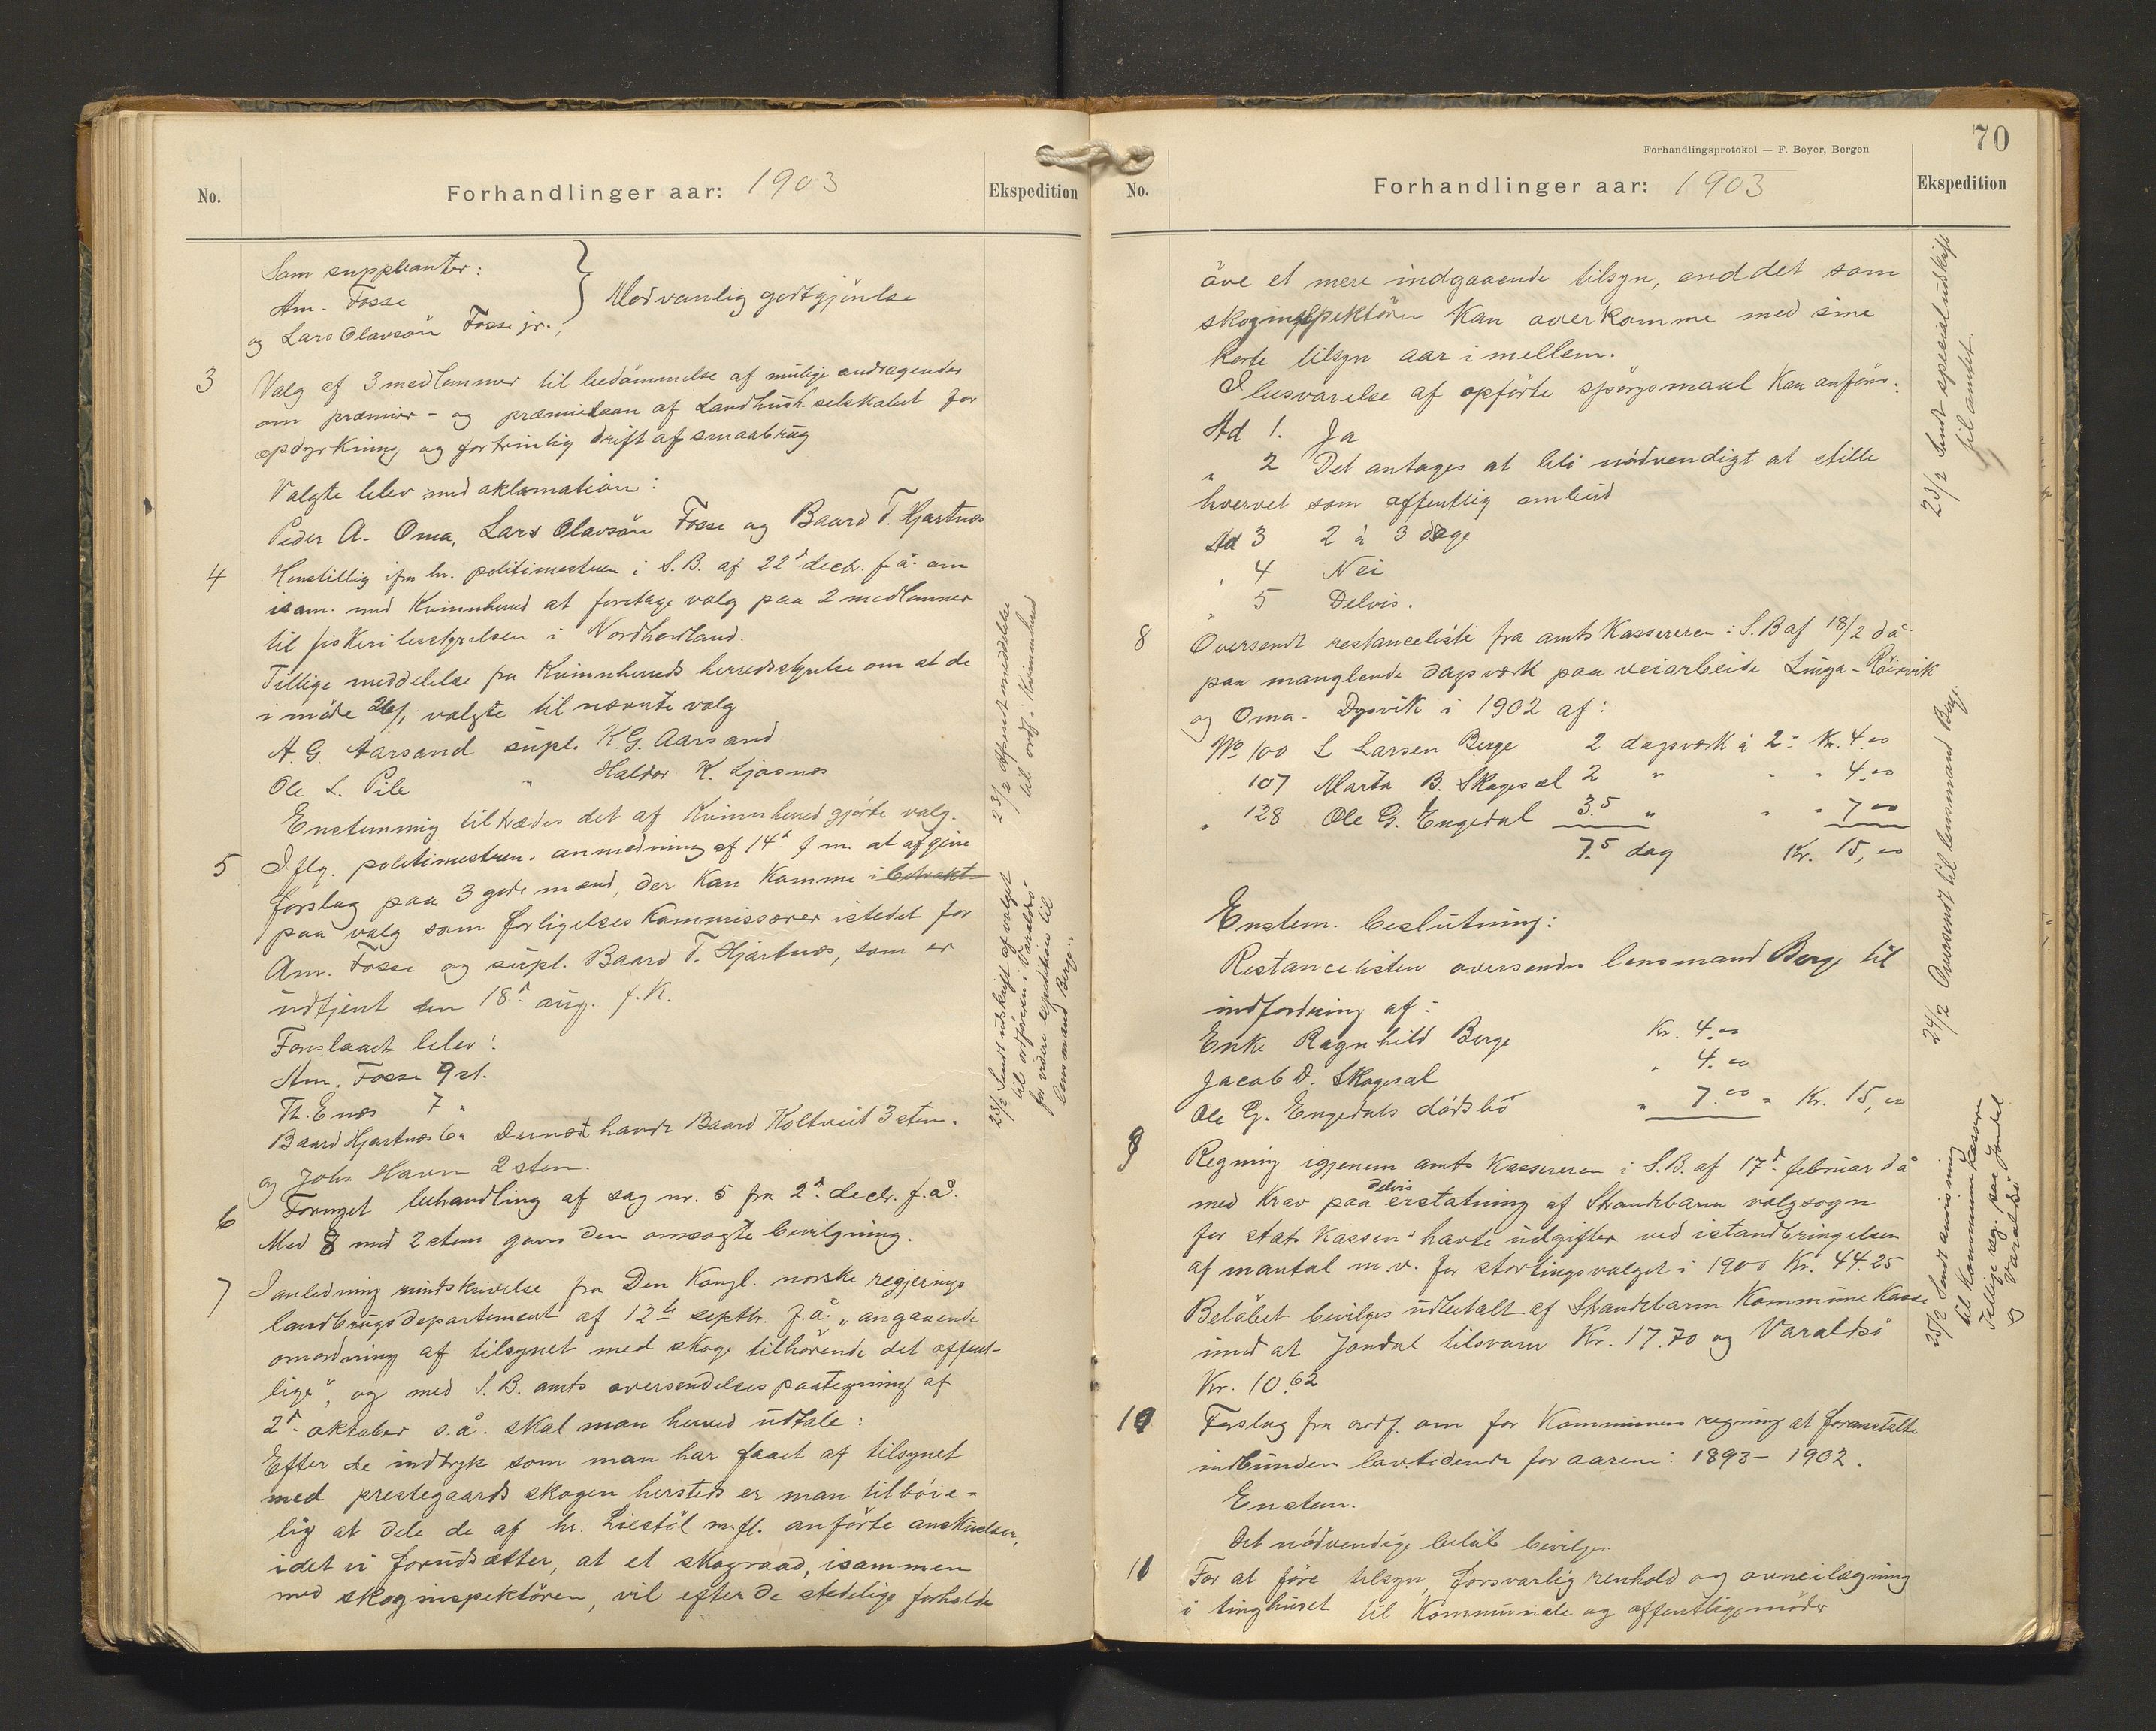 No.
Forhandlinger aar: 1903
Ekspedition
Som suppleanter:
Am. Fosse
og Lars Olavsön Fosse jr.,
} Mod vanlig godtgjörelse
3 Valg af 3 medlemmer til bedömmelse af mulige andragender
om præmier- og præmielaan af Landhush. selskabet for
opdyrkning og fortrinlig drift af smaabrug
Valgte blev med aklamation:
Peder A. Oma, Lars Olavsön Fosse og Baard T. Hjartnæs
4 Henstillig ifra hr. politimesteren i S.B. af 22d decb. f.å. om
isam. med Kvinnherred at foretage valg paa 2 medlemmer
til fiskeribestyrelsen i Nordhordland.
Tillige meddelelse fra Kvinnherreds herredsstyrelse om at de
i möde 26/1 valgte til nævnte valg
A. G. Aarsand supl. K. G. Aarsand
Ole L. Pile " Haldor K. Ljosnæs
Enstemmig tiltrædes det af Kvinnherred gjorte valg.
5 Iflg. politimesteren. anmodning af 14d f.m. at afgive
forslag paa 3 gode mænd, der kan komme i betrakt
paa valg som forligelseskommissærer istedet for
Am. Fosse og supl. Baard T. Hjartnæs, som er
udtjent den 18d aug. f.k.
Foreslaaet blev:
Am. Fosse 9 st.
Th. Enæs 7 "
Baard Hjartnæs 6 " Dernæst havde Baard Koltveit 3 stem.
og John Havn 2 stem.
6 Fornyet behandling af sag nr. 5 fra 2d decb. f.å.
Med 8 mod 2 stem gaves den omsøgte bevilgning.
7 I anledning rundskrivelse fra Den Kongl. norske regjerings
landbrugsdepartement af 12te septbr. f.å. „angaaende
omordning af tilsynet med skoge tilhörende det offent-
lige", og med S.B. amts oversendelsespaategning af
2d oktober s.å. skal man herved udtale:
Efter de indtryk som man har faaet af tilsynet
med prestegaardsskogen hersteds er man tilböie-
lig at dele de af hr. Liestöl m.fl. anförte anskuelser,
idet vi forudsætter, at et skograad, isammen
med skoginspektören, vil efter de stedelige forholde
23/2 Afsendt meddelelse
til ordf. i Kvinnherred
23/2 Sendt udskrift af valget
til ordföreren i Varaldsö
for videre expedition til
lensmand Berge.
Forhandlingsprotokol — F. Beyer, Bergen
70
No.
Forhandlinger aar: 1903
Ekspedition
öve et mere indgaaende tilsyn, end det som
skoginspektören kan overkomme med sine
korte tilsyn aar i mellem.
I besvarelse af opförte spörgsmaal kan anföres:
Ad 1. Ja
" 2 Det antages at bli nödvendigt at stille
hvervet som offentlig ombud
Ad 3 2 à 3 dage
" 4 Nei
" 5 Delvis.
8 Oversendt restanceliste fra amtskassereren i S.B af 18/2 d.å.
paa manglende dagsværk paa veiarbeide Linga-Röirvik
og Oma-Dysvik i 1902 af:
No 100 L Larsen Berge 2 dagsværk à 2- Kr. 4.00
" 107 Marta B. Skogesæl 2 " " " 4.00
" 128 Ole G. Engedal 3.5 " " " 7 00
7.5 dag Kr. 15,00
Enstem. beslutning:
Restancelisten oversendes lensmand Berge til
indfordring af:
Enke Ragnhild Berge Kr. 4.00
Jacob D. Skogesæl " 4.00
Ole G. Engedals dödsbo " 7.00 = Kr. 15,00
9 Regning igjenem amtskassereren i S.B. af 17d februar d.å
med krav paa delvis erstatning af Strandebarm valgsogn
for statskassens havte udgifter ved istandbringelsen
af mantal m.v. for stortingsvalget i 1900 Kr. 44.25
Belöbet bevilges udbetalt af Strandebarm Kommunekasse
imod at Jondal tilsvarer Kr. 17.70 og Varaldsö
Kr. 10.62
10 Forslag fra ordf. om for Kommunens regning at foranstalte
indbunden lovtidende for aarene: 1893-1902.
Enstem.
Det nödvendige belöb bevilges.
11 For at före tilsyn, forsvarlig renhold og ovneilægning
i tinghuset til Kommunale og offentlige möder
23/2 Sendt specialudskrift
til amtet.
24/2 Oversendt til lensmand Berge.
25/2 Sendt anvisning
til Kommunekasserer
Tillige reg. paa Jondal
og Varaldsö